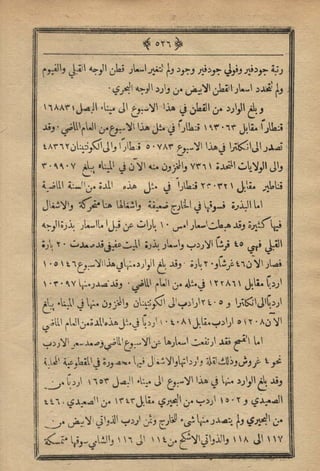 ﴿ ٥٢٦ ﴾
رتبة جودفير وفولي جودفير وجود ولم تتغير اسعار قطن الوجه القبلي والفيوم
ولم تتحدد اسعار القطن الابيض من وارد الوجه البحري .
وبلغ الوارد من القطن في هذا الاسبوع الى ميناء البصل ١٦٨٨٣١
قنطاراً مقابل ١٩٣٠٦٣ قنطاراً في مثل هذا الاسبوع من العام الماضي . وقد
تصدر الى انكلترا في هذا الاسبوع ٥٠٧٨٣ قنطاراً والى الكونتينان ٤٨٣٦٢
والى الولايات المتحدة ٧٣٦١ والمخزون منه الآن في الميناء يبلغ ٣٠٩٩٠٧
قناطير مقابل ٢٠٣٢١ قنطاراً في مثل هذه المدة من السنة الماضية
اما البذرة فسوقها في الخارج ضعيفة واشغالها هنا متحركة والاشغال
فيها كثيرة وقد هبطت اسعار امس ١٠ بارات عن قبل اما اسعار بذرة الوجه
القبلي فهي ٤٥ غرشاً الاردب واسعار بذرة الميت عفيفي قد صعدت ٢٠ بارة
فصار الآن ٤٦ غرشاً و٢٠ بارة . وقد بلغ الوارد منها في هذا الاسبوع ١٠٥١٤٦
اردباً مقابل ١٢٢٨٦١ في مثله من العام الماضي . وقد تصدر منها ١٠٣٠٩٧
اردباً الى انكلترا و ٢٤٠٥ ارادب الى الكونتينان والمخزون منها في الميناء يبلغ
الآن ٥١٢٠٨ ارادب مقابل ١٠٤٠٨١ اردباً في مثل هذه المدة من العام الماضي
اما القمح فقد ارتفعت اسعارها عن الاسبوع الماضي وصعد سعر الاردب
نحو ٤ غروش وذلك لقلة وارداتها والاشغال فيها محصورة في المقطوعية المحلية
وقد بلغ الوارد منها في هذا الاسبوع الى ميناء البصل ١٦٥٣ اردباً من
الصعيدي و ١٥٠٢ اردب من البحيري مقابل ١٣٤٣ من الصعيدي و ٤٤٦٠
من البحيري ولم يتصدر منها شيء للخارج وثمن اردب الذواتي الابيض من
١١٧ الى ١١٨ والذواتي الاشكح من ١١٤ الى ١١٦ والشامي سوقها متمسكة